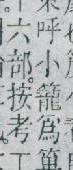 呼小籠爲箄
六部。按考工